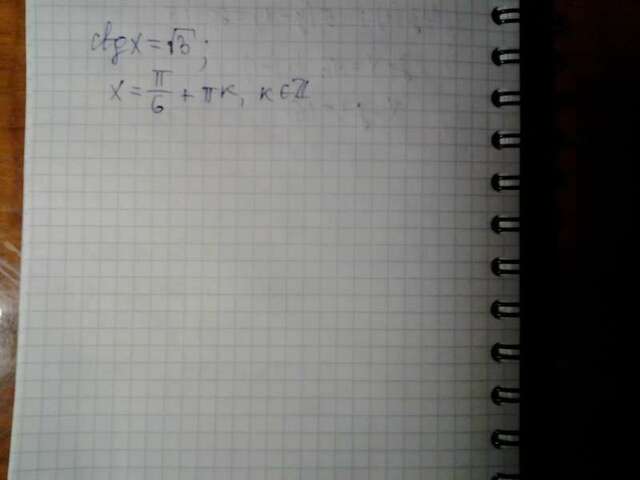 ctgx = √3;
x = π/6 + πк, к ∈ ℤ